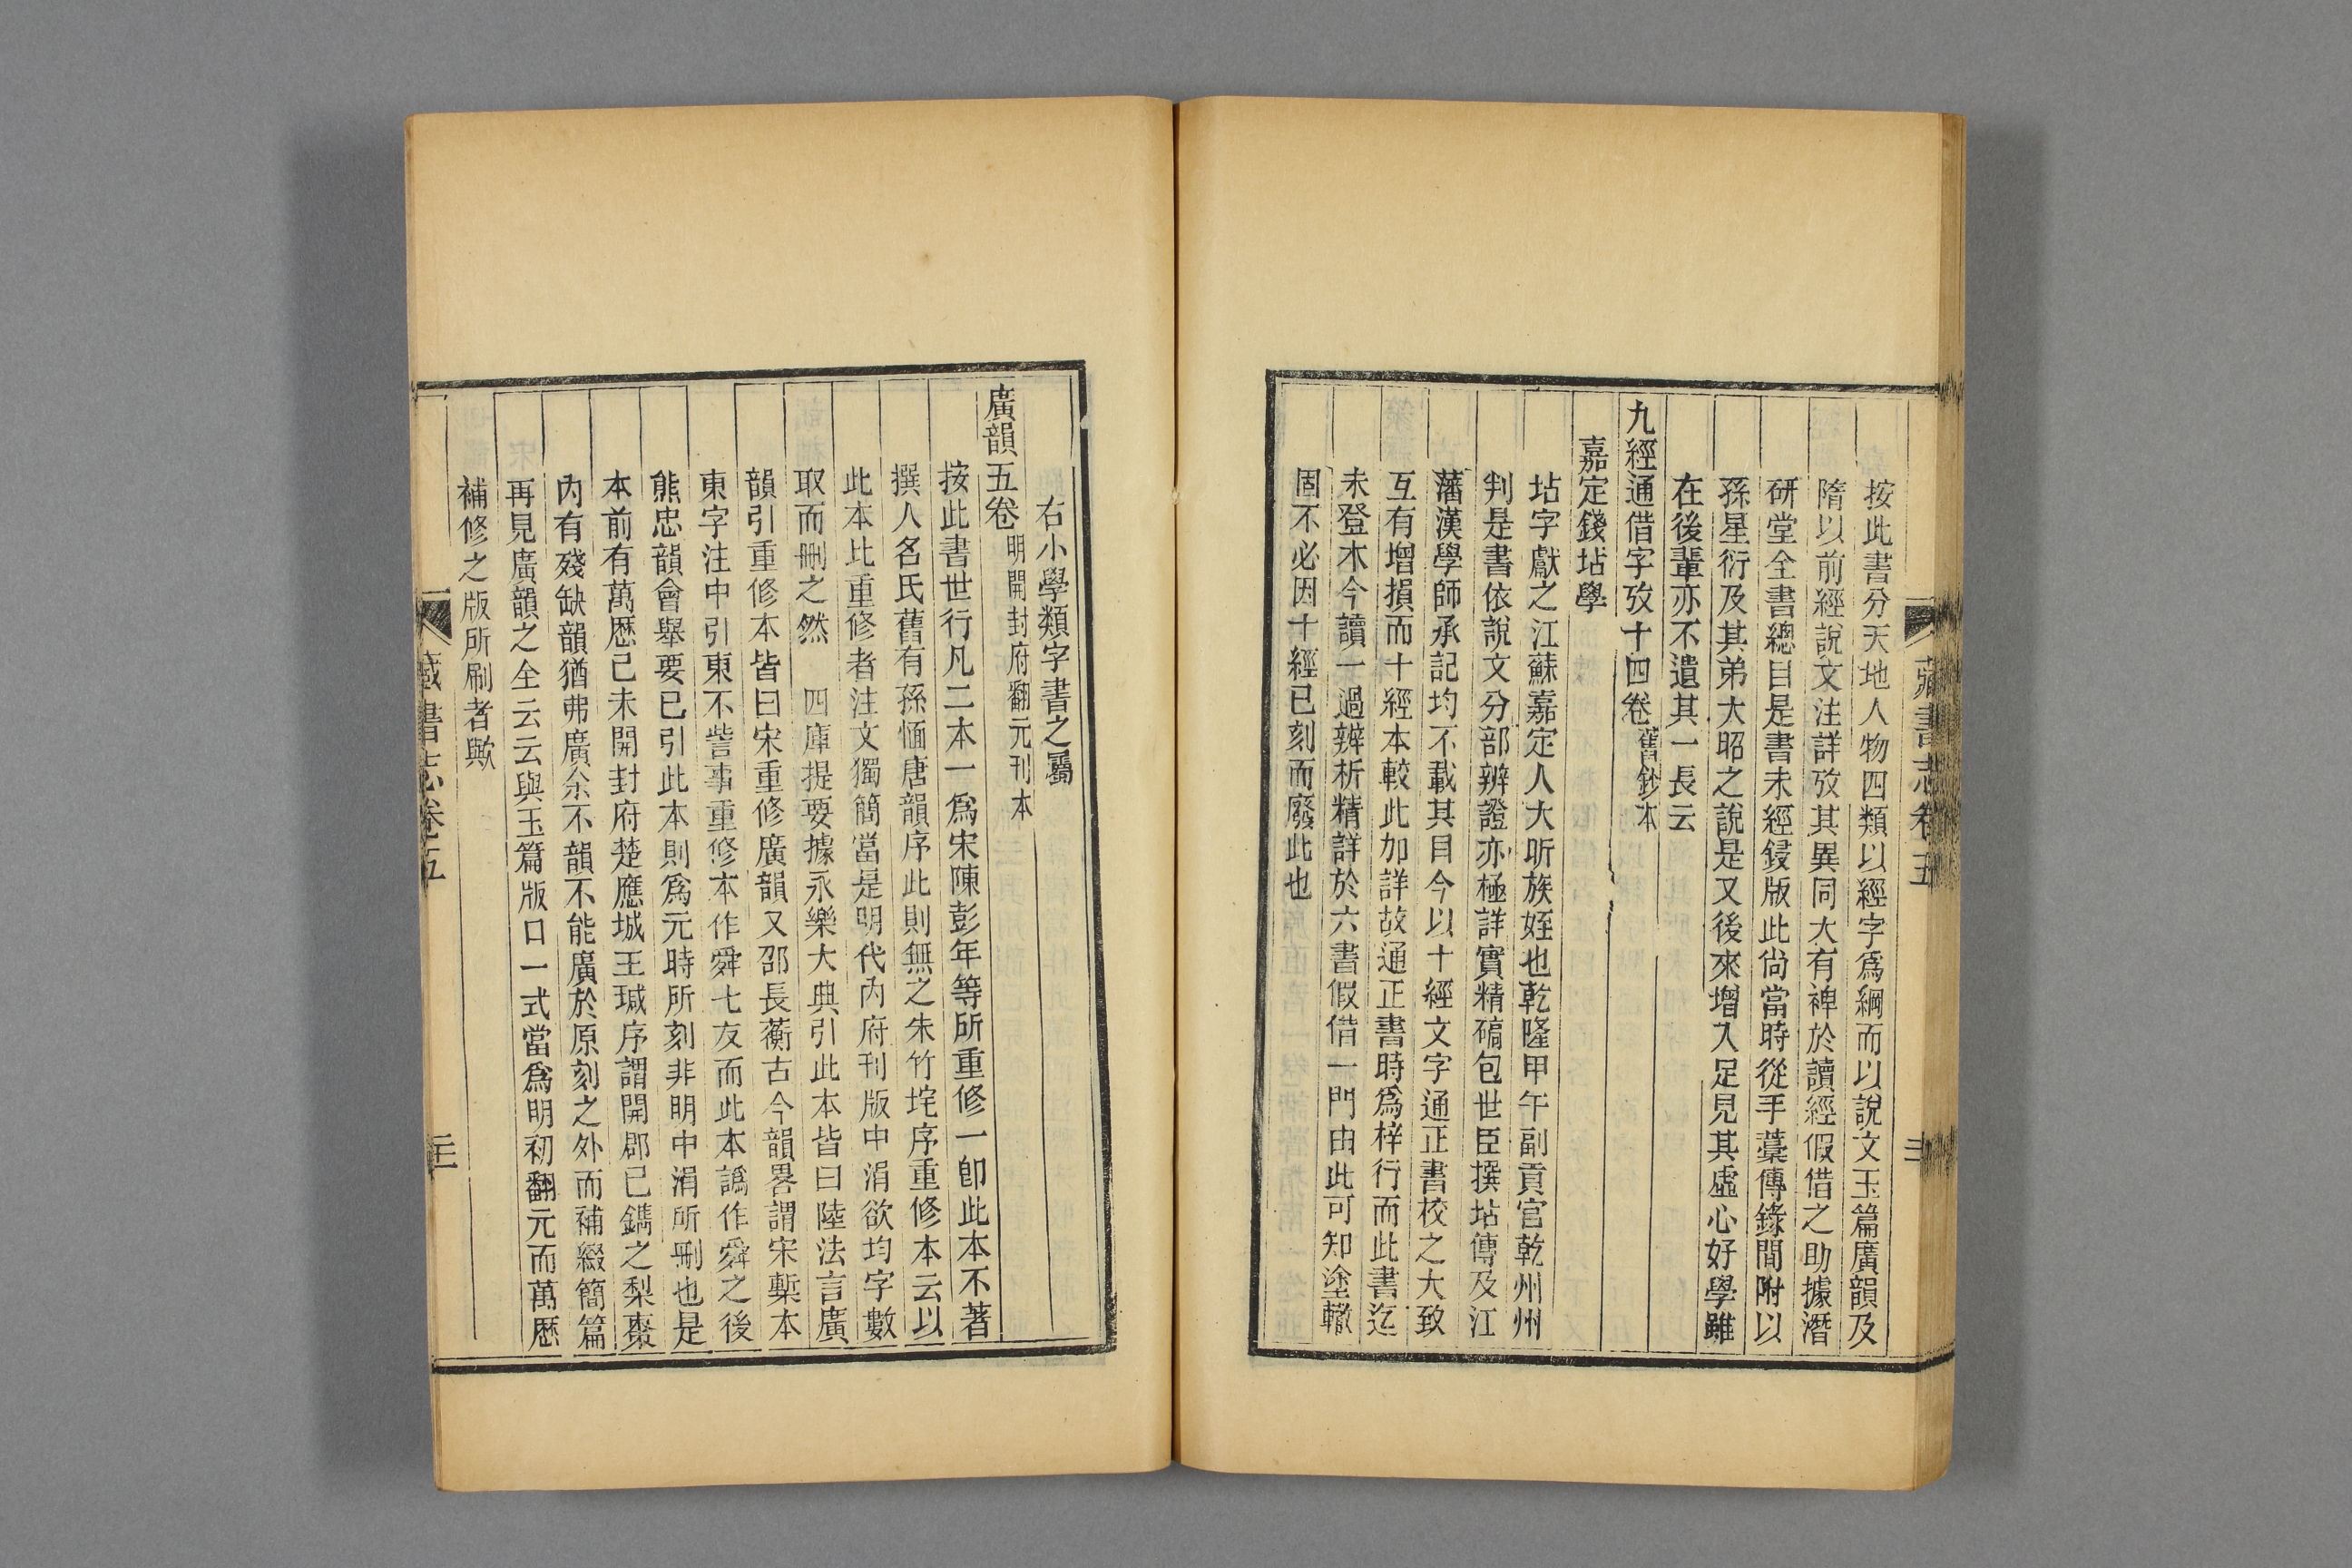 藏書志卷五
按此書分天地人物四類以經字爲綱而以說文玉篇廣韻及
隋以前經說文注詳攷其異同大有裨於讀經假借之助據潛
研堂全書總目是書未經鋟版此尙當時從手藁傳錄間附以
孫星衍及其弟大昭之說是又後來增入足見其虛心好學雖
在後輩亦不遺其一長云
九經通借字攷十四卷舊鈔本
嘉定錢坫學
坫字獻之江蘇嘉定人大昕族姪也乾隆甲午副貢官乾州州
判是書依說文分部辨證亦極詳實精碻包世臣撰坫傳及江
藩漢學師承記均不載其目今以十經文字通正書校之大致
互有增損而十經本較此加詳故通正書時爲梓行而此書迄
未登木今讀一過辨析精詳於六書假借一門由此可知塗轍
固不必因十經已刻而廢此也
右小學類字書之屬
廣韻五卷明開封府翻元刊本
按此書世行凡二本一爲宋陳彭年等所重修一卽此本不著
撰人名氏舊有孫愐唐韻序此則無之朱竹垞序重修本云以
此本比重修者注文獨簡當是明代內府刊版中涓欲均字數
取而刪之然　四庫提要據永樂大典引此本皆曰陸法言廣
韻引重修本皆曰宋重修廣韻又邵長蘅古今韻畧謂宋槧本
東字注中引東不訾事重修本作舜七友而此本譌作舜之後
熊忠韻會舉要已引此本則爲元時所刻非明中涓所刪也是
本前有萬歷己未開封府楚應城王瑊序謂開郡已鐫之梨棗
內有殘缺韻猶弗廣余不韻不能廣於原刻之外而補綴簡篇
再見廣韻之全云云與玉篇版口一式當爲明初翻元而萬歷
補修之版所刷者歟
藏書志卷五